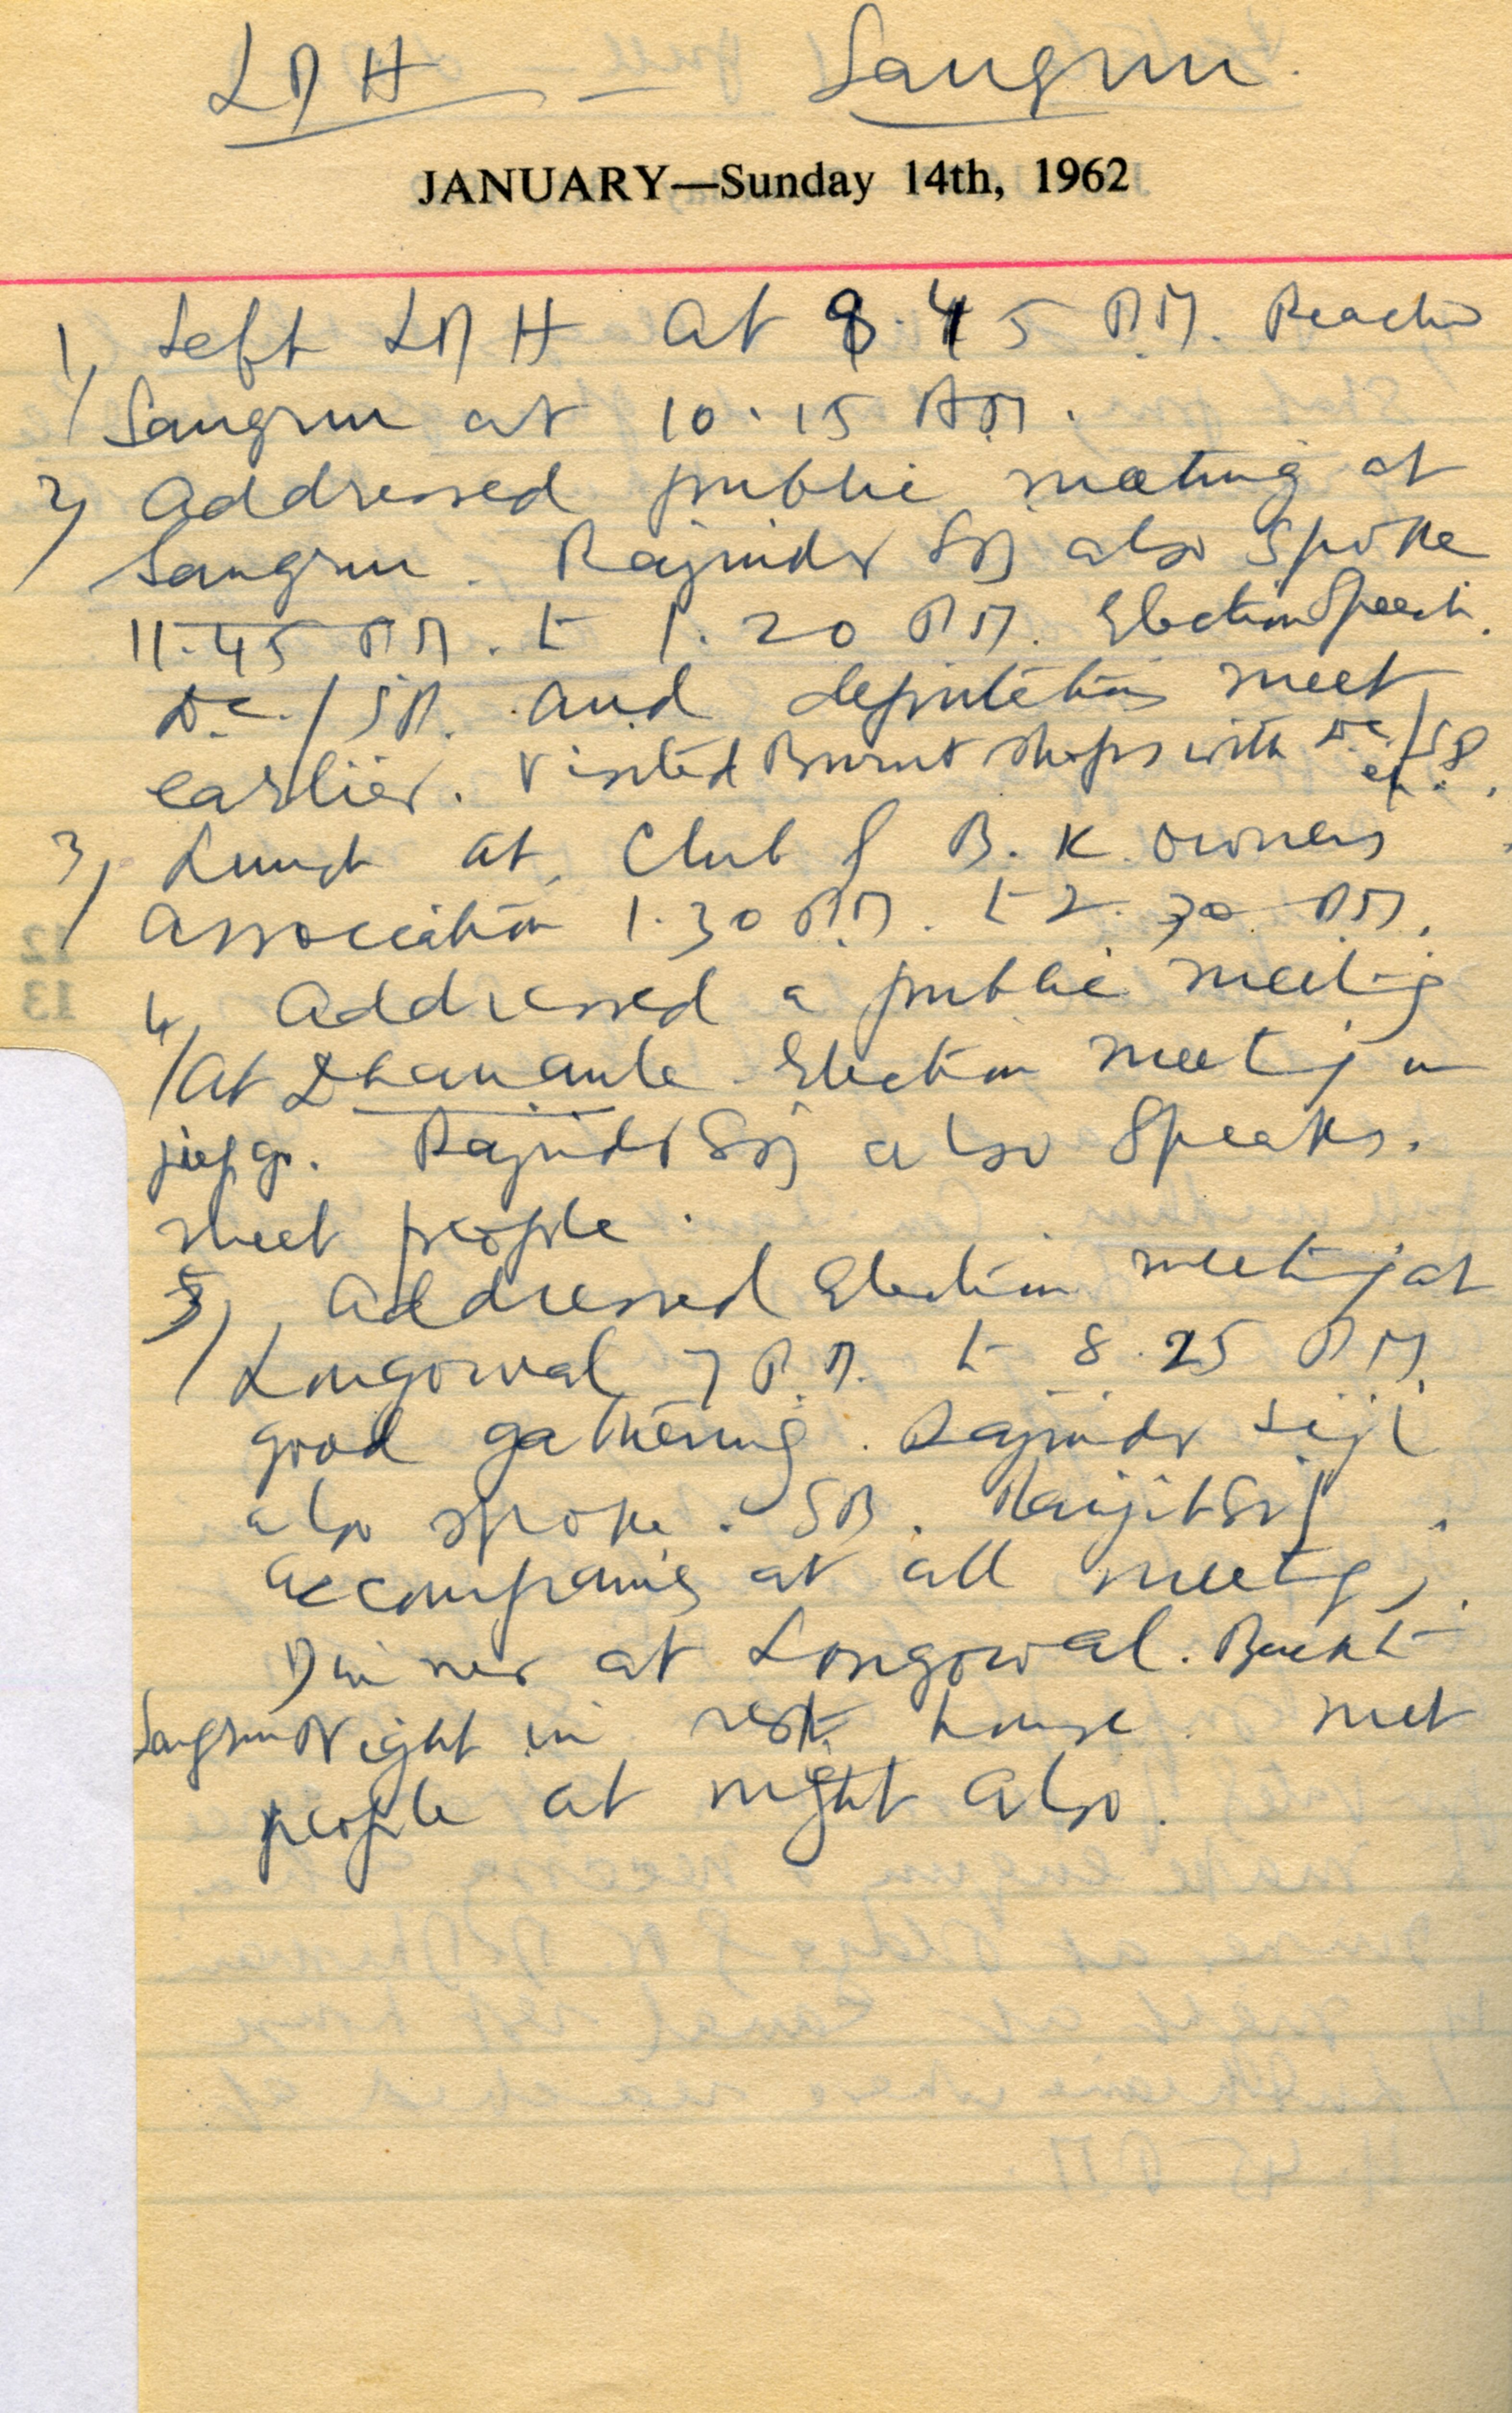 LDH — Sangrur.
JANUARY—Sunday 14th, 1962
1, Left LDH at 8.45 P.M. Reached
Sangrur at 10.15 A.M.
2, Addressed public meeting at
Sangrur. Rajinder Sgh also spoke
11.45 P.M. to 1.20 P.M. Election Speech.
D.C./S.P. and deputations meet
earlier. Visited Burnt shops with D.C./S.P.
3, Lunch at Club of B.K. owners
association 1.30 P.M. to 2.30 P.M.
4, Addressed a public meeting
at Dhanaula Election meeting in
Rajinder Sgh also speaks.
meet people.
5, Addressed Election meeting at
Longowal 7 P.M. to 8.25 P.M.
good gathering. Rajinder Singh
also spoke. SB. Ranjit Sgh
accompanies at all meetings.
Dinner at Longowal. Back to
Sangrur Night in rest house. met
people at night also.